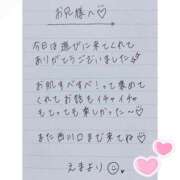 お兄様へ♡
今日は遊びに来てくれて
ありがとうございました
お肌すべすべ！って褒めて
くれてお話もイチャイチャ
もとっても楽しかった〜♡
また西川口まで来てね♡
えまより☺